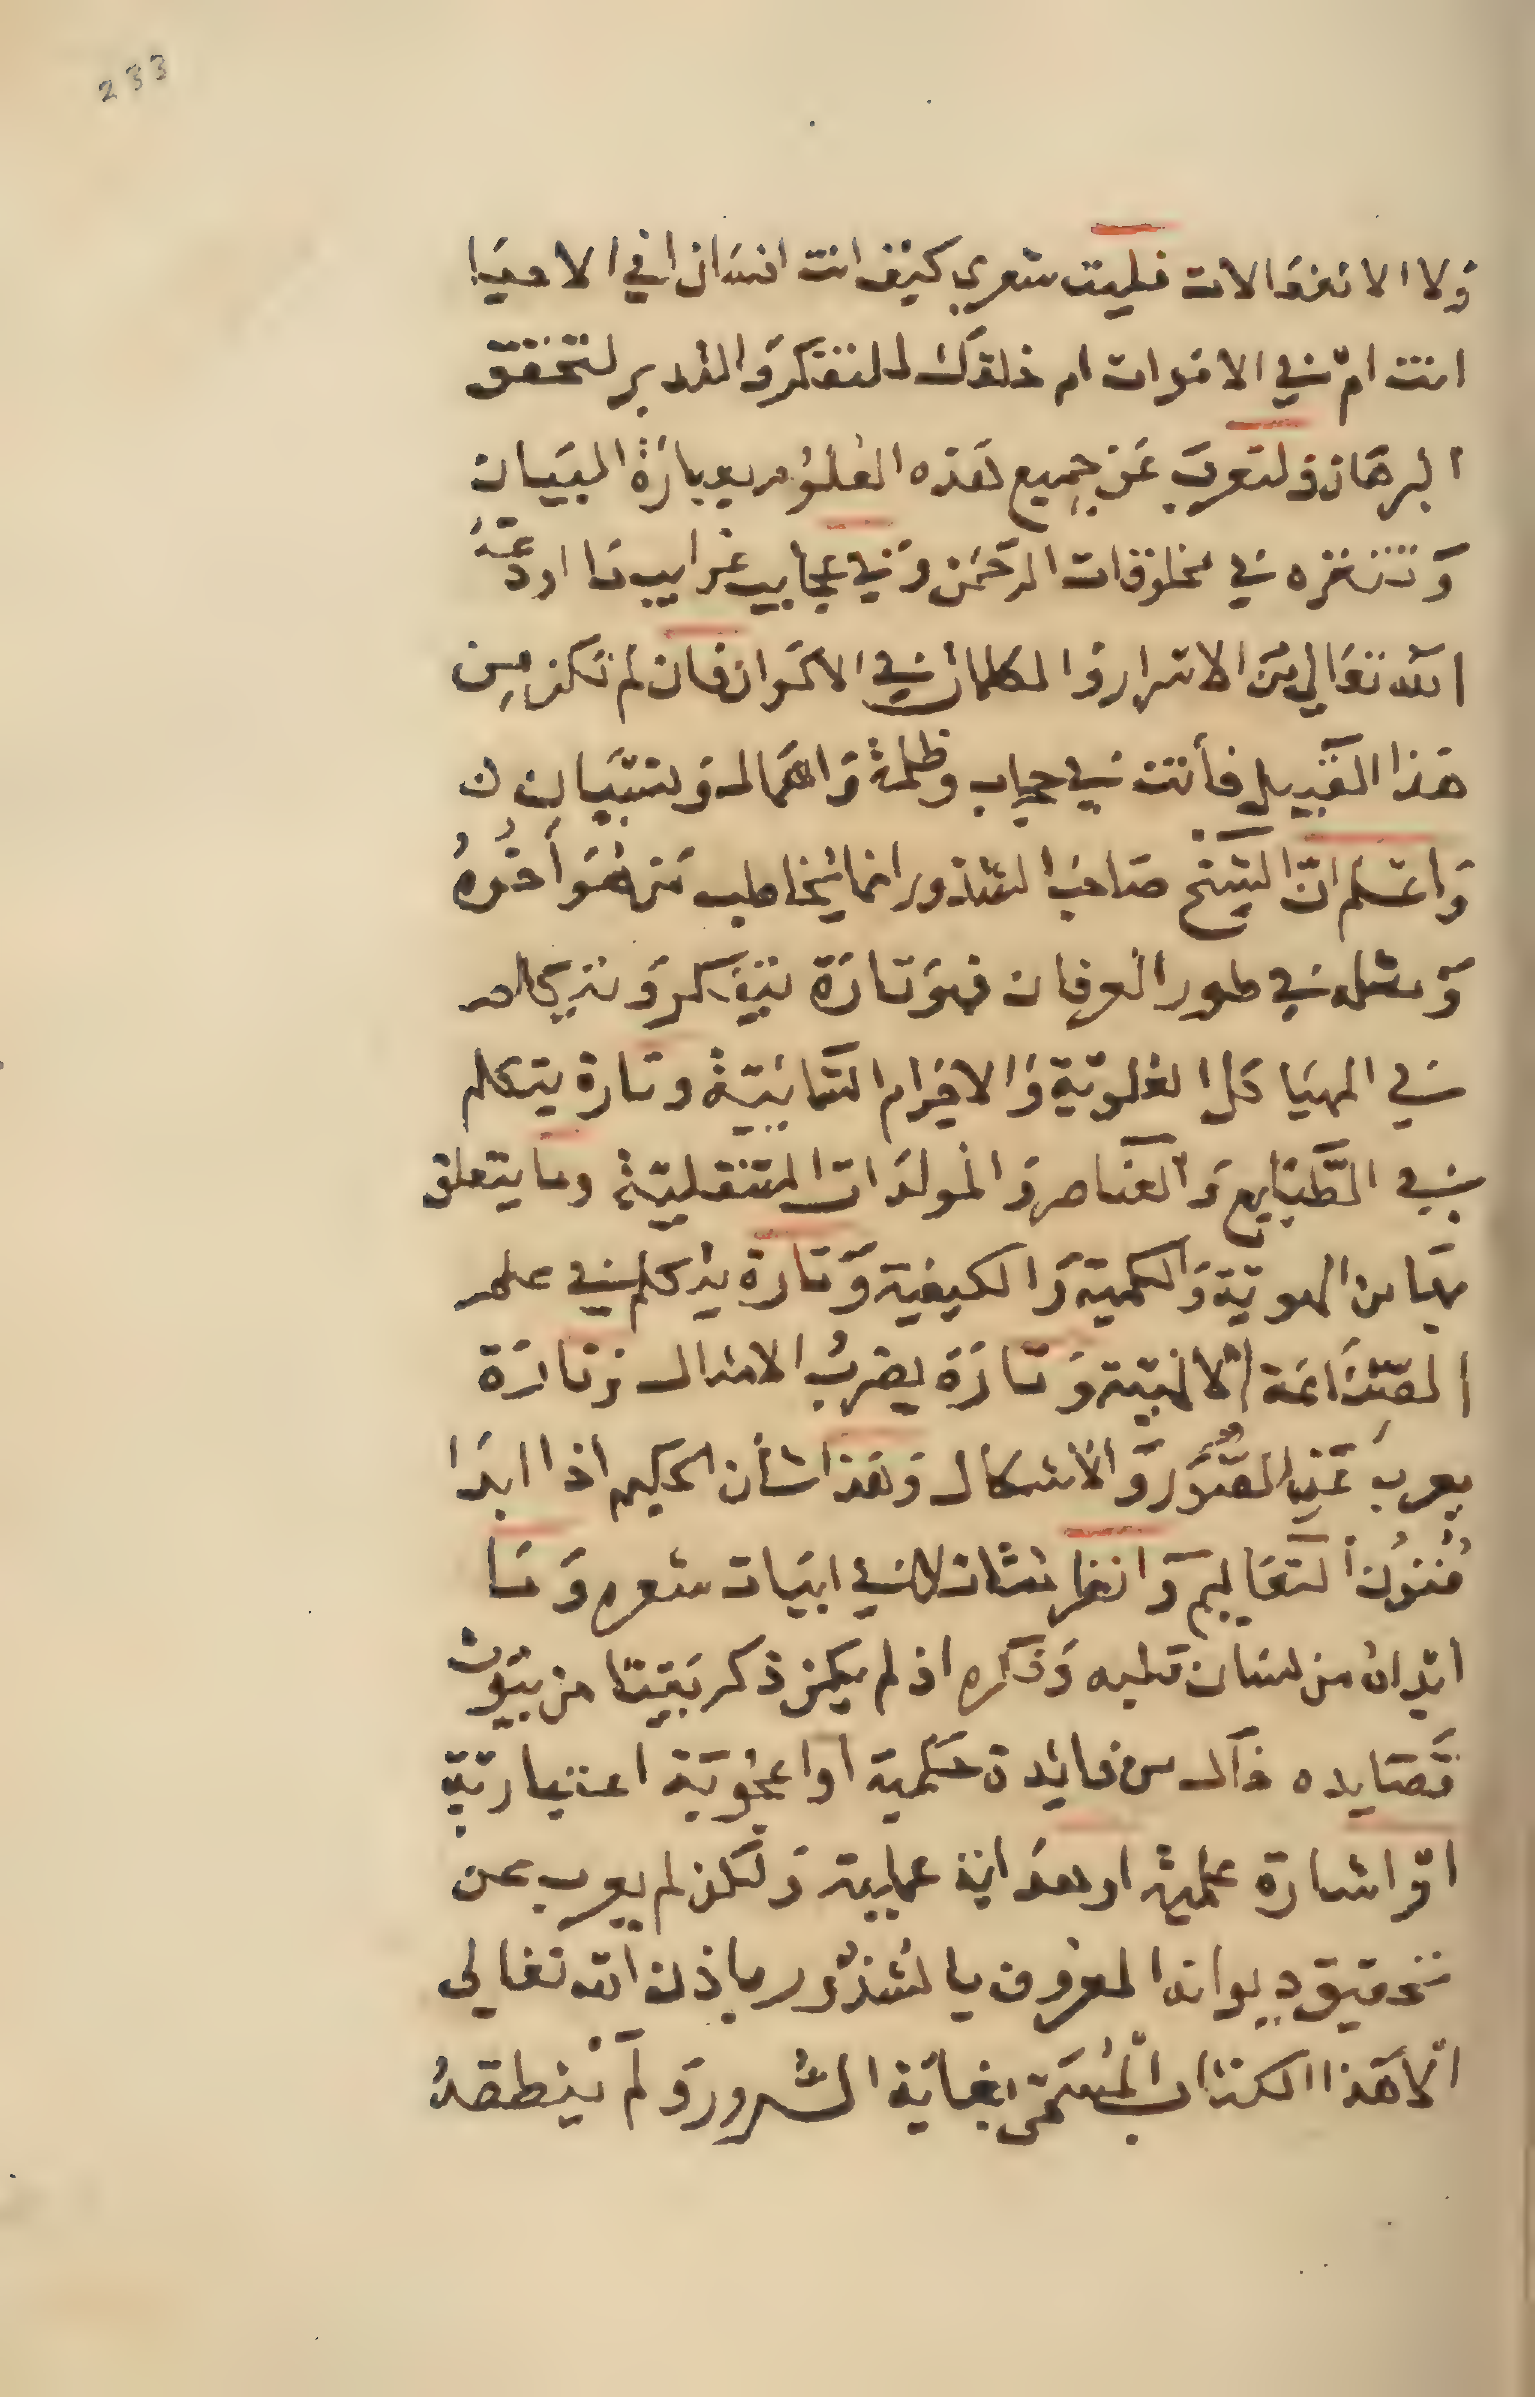 233
ولا الانفعالات فليت شعري كيف انت انسان افي الاحيا
انت ام في الاموات ام خلقك للتفكر والتدبر لتحقق
البرهان ولتعرب عن جميع هذه العلوم بعبارة البيان
وتتنزه في مخلوقات الرحمن وفي عجايب غرايب ما اودعه
الله تعالى من الاسرار والكلمات في الاكوان فان لم تكن من
هذا القبيل فأنت في حجاب وظلمة واهمال ونسيان
واعلم ان الشيخ صاحب الشذور انما يخاطب من هو أخوه
ومثله في طور العرفان فهو تارة يتذكر ويتكلم
في الهياكل العلوية والاجرام السمائية وتارة يتكلم
في الطبايع والعناصر والمولدات المستقلية وما يتعلق
بها من الهوية والكمية والكيفية وتارة يتكلم في علم
الصناعة الالهية وتارة يضرب الامثال وتارة
يعرب عن الصور والاشكال وهذا شأن الحكيم اذا ابدا
فنون التعاليم وانظر شأنه في ابيات شعره وما
ابداه من لسان قلبه وذكره اذ لم يكن ذكر بيتا من بيوت
قصايده خال من فائدة حكمية او اعجوبة اعتبارية
او اشارة علمية او هداية عملية ولكن لم يعرب عن
تحقيق ديوانه المعروف بالشذور باذن الله تعالى
الا هذا الكتاب المسمى بغاية السرور ولم ينطق